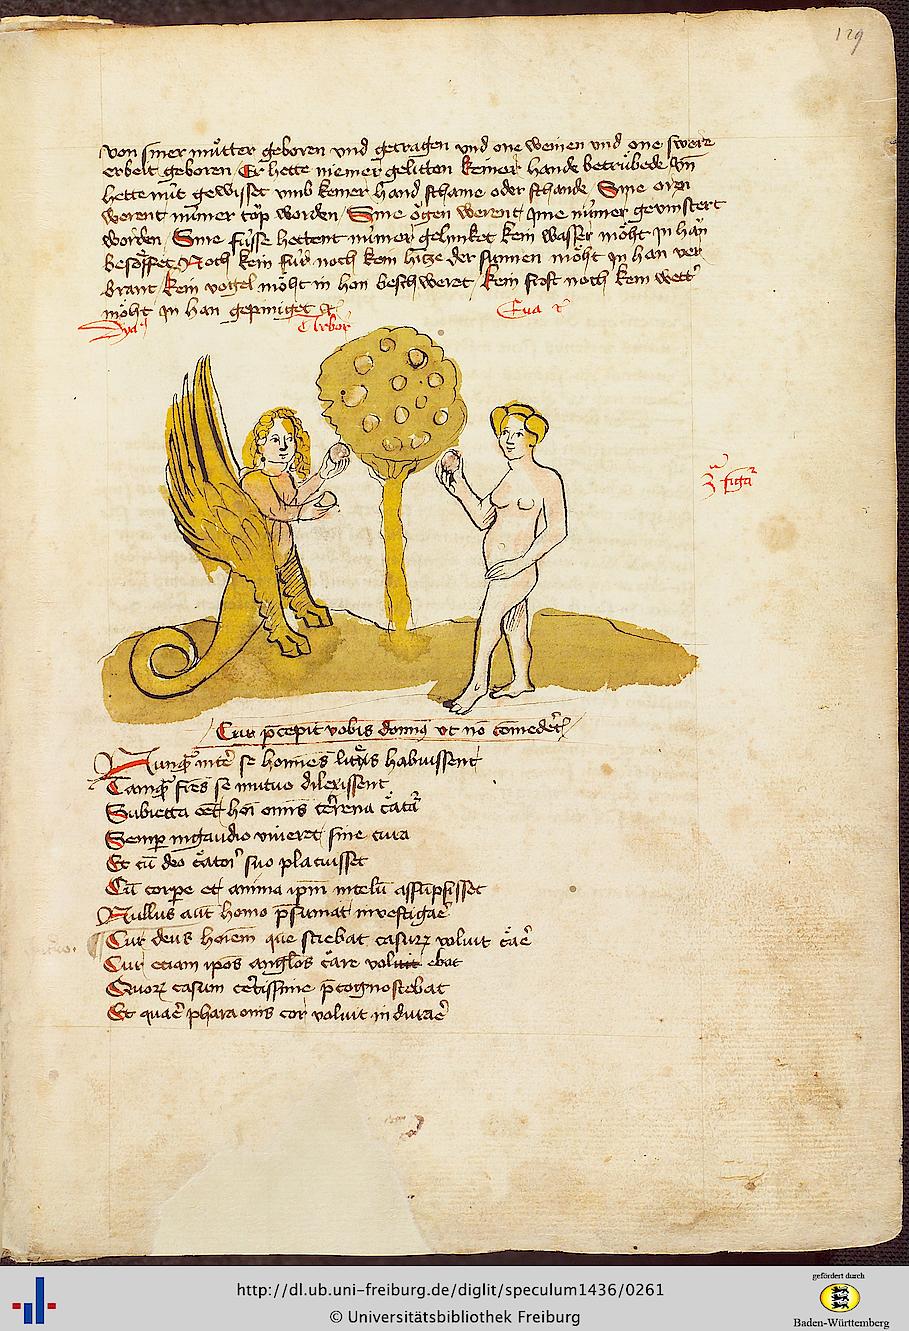 129
von siner můtter geboren vnd getragen vnd one weinen vnd one swere
erbeit geboren / Er hette niemer gelitten keiner hande betrübede Vn̄
hette nüt gewisset vmb keiner hand schame oder schande Sine oren
werent nümer töp worden / Sine ögen werent jme nümer gevinstert
worden / Sine füsse hettent nümer gehinket kein wasser möht jn han
besöffet Noch kein für noch kein hitze der sunnen möht jn han ver
brant / kein vogel möht in hon beschweret / kein frost noch kein wetter
möht jn han gepiniget
Dya
Arbor
Eua
3ᵃ figᵃ
Cur p̄cepit vobis domin9 vt nō comederetꝭ
Nunqͣ inter se homīes lites habuissent
Tamqͣ fr̄es se mutuo dilexissent
Subiecta eēt hōi omīs terrena cͣatᵃ
Semper in gaudio viueret sine cura
Et cū deo cͣatori suo placuisset
Cū corpe et anima ipm̄ in celū assūpsisset
Nullus aut̄ homo p̄sumat investigare
Cur deus hoīem que sciebat casurꝝ voluit cͣare
Cur eciam ipos angl̄os cͣare voluit ebat
Quoꝝ casum certissime p̄cognoscebat
Et quare pharaonis cor voluit indurare
http://dl.ub.uni-freiburg.de/diglit/speculum1436/0261
© Universitätsbibliothek Freiburg
gefördert durch
Baden-Württemberg